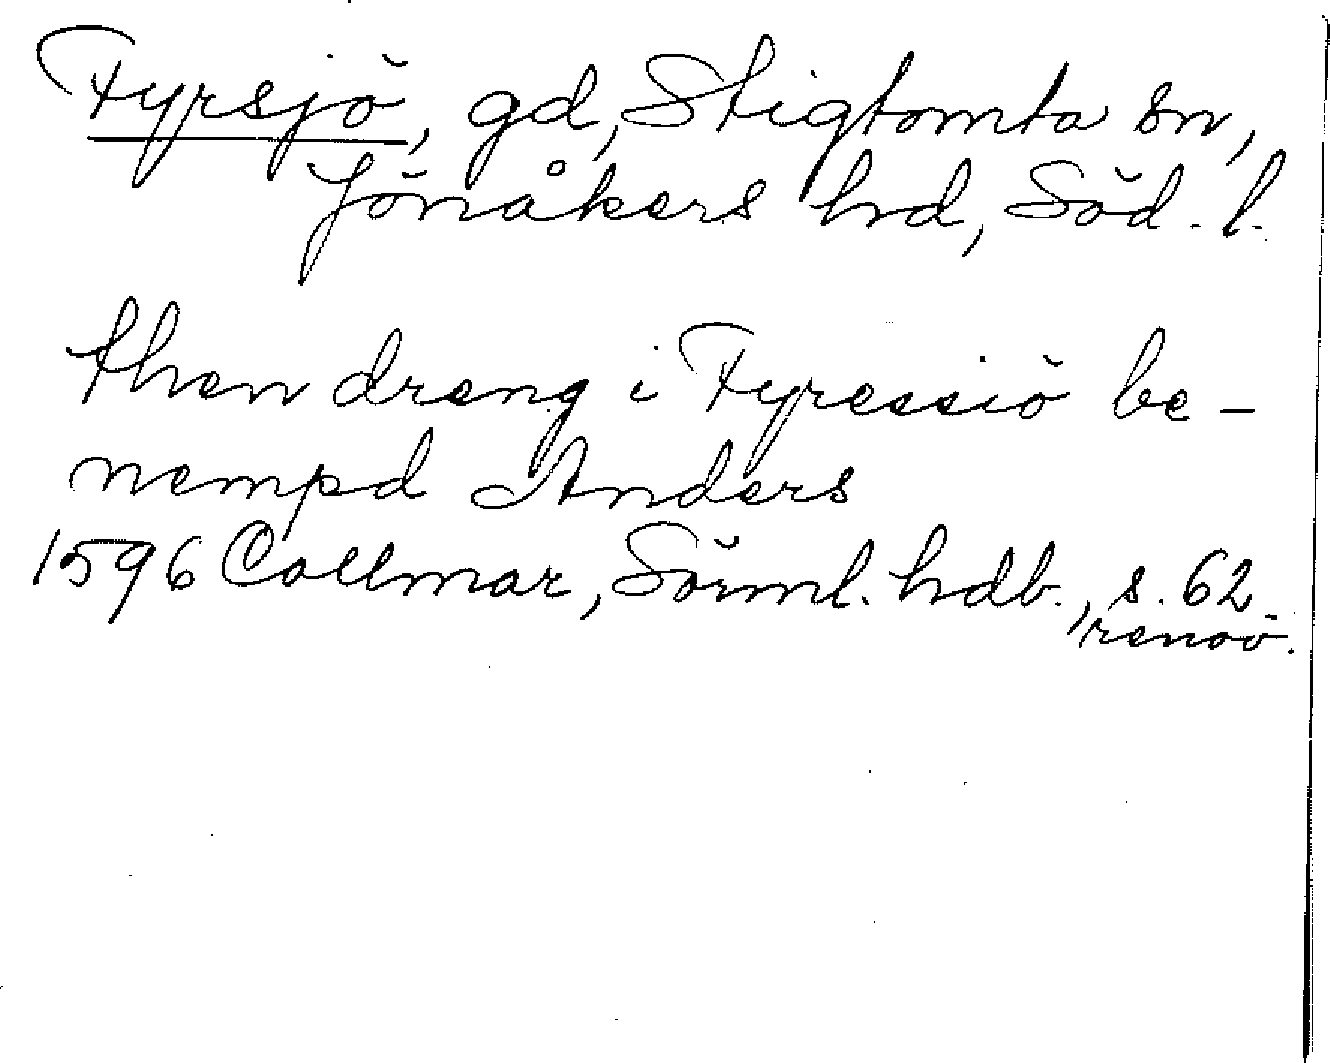 Fyrsjö, gd, Stigtomta sn,
Jönåkers hd, Söd. l.
then dreng i Fyressiö be-
nempd Anders
1596 Collmar, Sörml. hdb., s. 62
renov.